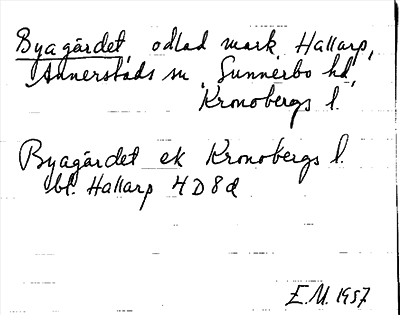 Byagärdet, odlad mark, Hallarp,
Annerstads sn, Sunnerbo hd,
Kronobergs l.
Byagärdet ek Kronobergs l.
bl. Hallarp 4D8d
E.M. 1957